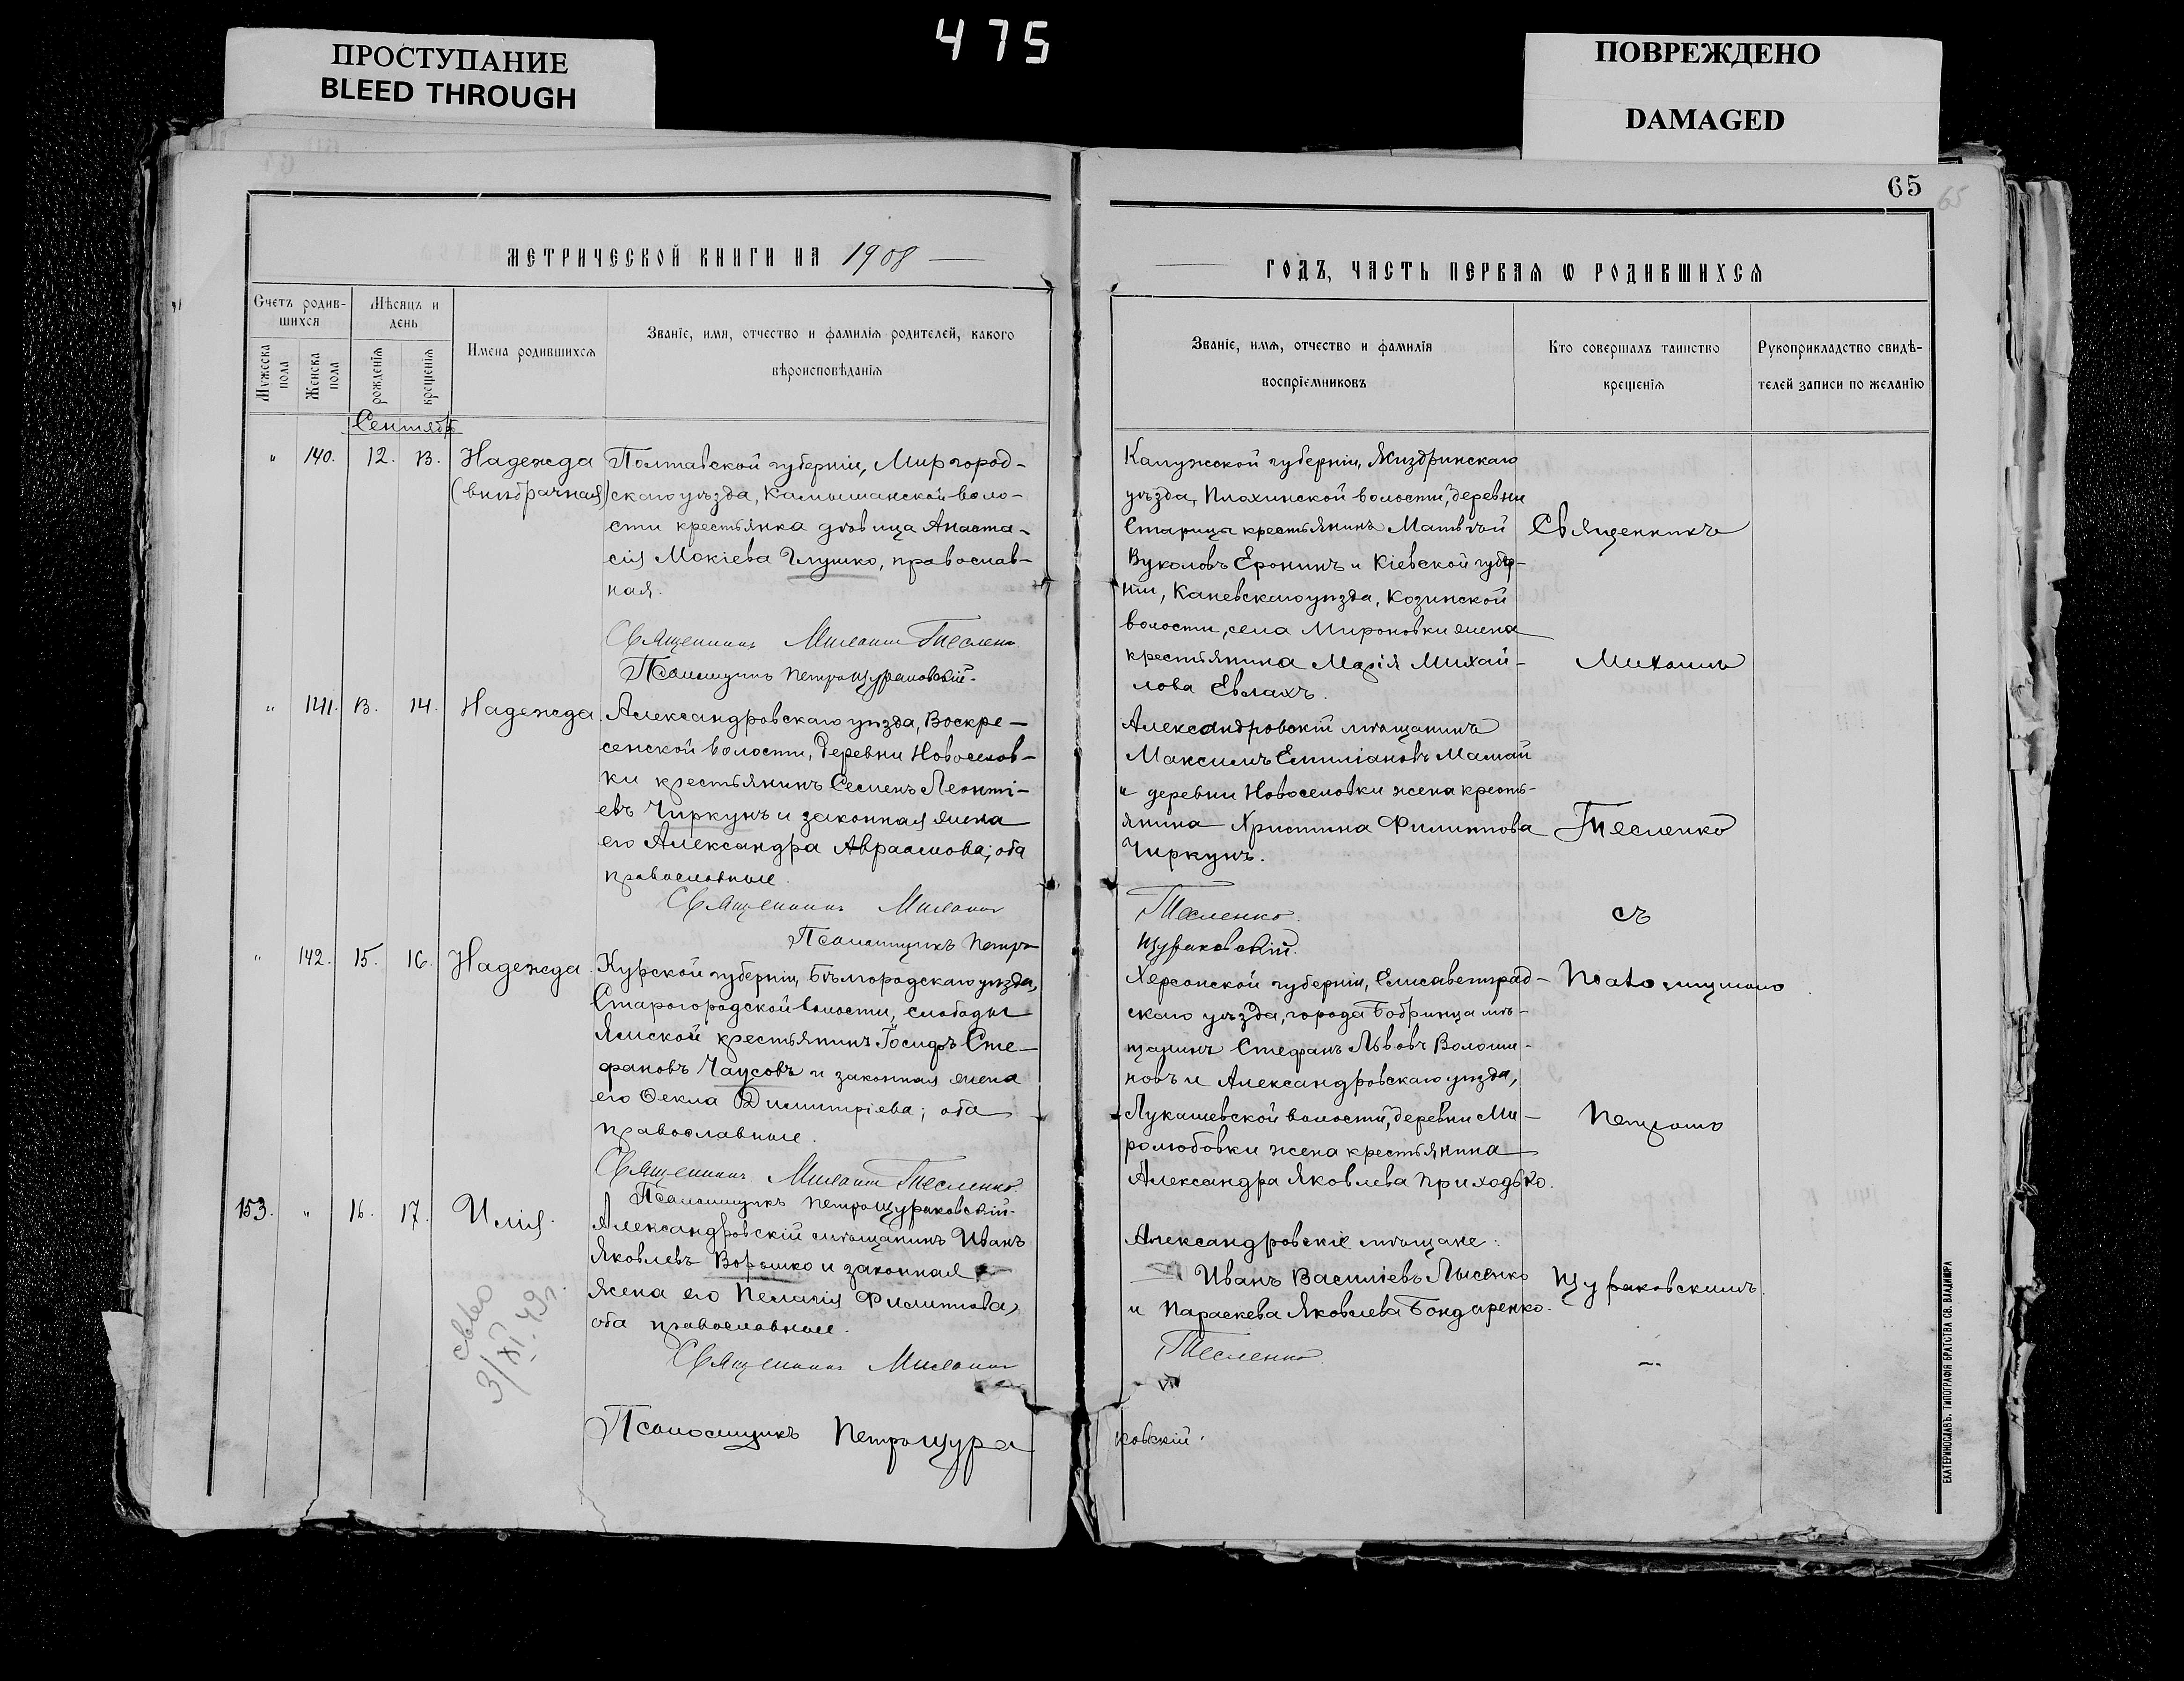 475
ПРОСТУПАНИЕ
BLEED THROUGH
ПОВРЕЖДЕНО
DAMAGED
65
65
МЕТРИЧЕСКОЙ КНИГИ НА 1908
Счетъ родив-
шихся
Мѣсяцъ и
день
Мужеска
пола
Женска
пола
рожденія
крещенія
Имена родившихся
Званіе, имя, отчество и фамилія родителей, какого
вѣроисповѣданія
Сентябрь
" 140. 12. 13. Надежда
(внѣбрачная)
Полтавской губерніи, Миргород-
скаго уѣзда, Камышанской воло-
сти крестьянка дѣвица Анаста-
сія Мокіева Глушко, православ-
ная.
Священникъ Михаилъ Тесленко
Псаломщикъ Петръ Щураковскій.
" 141. 13. 14. Надежда.
Александровскаго уѣзда, Воскре-
сенской волости, деревни Новоселов-
ки крестьянинъ Семенъ Леонті-
евъ Чиркунъ и законная жена
его Александра Авраамова; оба
православные.
Священникъ Михаилъ
Псаломщикъ Петръ
" 142. 15. 16. Надежда.
Курской губерніи, Бѣлгородскаго уѣзда,
Старогородской волости, слободы
Ямской крестьянинъ Іосифъ Сте-
фановъ Чаусовъ и законная жена
его Ѳекла Димитріева; оба
православные.
Священникъ Михаилъ Тесленко.
Псаломщикъ Петръ Щураковскій.
153. " 16. 17. Илія.
Александровскій мѣщанинъ Иванъ
Яковлевъ Ворошко и законная
жена его Пелагія Филиппова,
оба православные.
Священникъ Михаилъ
Псаломщикъ Петръ Щура
св-во
3/XI-49г.
ГОДЪ, ЧАСТЬ ПЕРВАЯ Ѡ РОДИВШИХСЯ
Званіе, имя, отчество и фамилія
воспріемниковъ
Кто совершалъ таинство
крещенія
Рукоприкладство свидѣ-
телей записи по желанію
Калужской губерніи, Жиздринскаго
уѣзда, Плохинской волости, деревни
Старица крестьянинъ Матвѣй
Вуколовъ Еронинъ и Кіевской губер-
ніи, Каневскаго уѣзда, Козинской
волости, села Мироновки жена
крестьянина Марія Михай-
лова Евлахъ.
Александровскій мѣщанинъ
Максимъ Емиліановъ Мамай
и деревни Новоселовки жена кресть-
янина Христина Филиппова
Чиркунъ.
Тесленко.
Щураковскій.
Херсонской губерніи, Елисаветград-
скаго уѣзда, города Бобринца мѣ-
щанинъ Стефанъ Львовъ Волоши-
новъ и Александровскаго уѣзда,
Лукашевской волости, деревни Ми-
ролюбовки жена крестьянина
Александра Яковлева Приходько.
Александровскіе мѣщане:
Иванъ Василіевъ Лысенко
и Параскева Яковлева Бондаренко.
Тесленко.
ковскій.
Священникъ
Михаилъ
Тесленко
съ
Псаломщикомъ
Петромъ
Щураковскимъ.
ЕКАТЕРИНОСЛАВЪ. ТИПОГРАФІЯ БРАТСТВА СВ. ВЛАДИМІРА